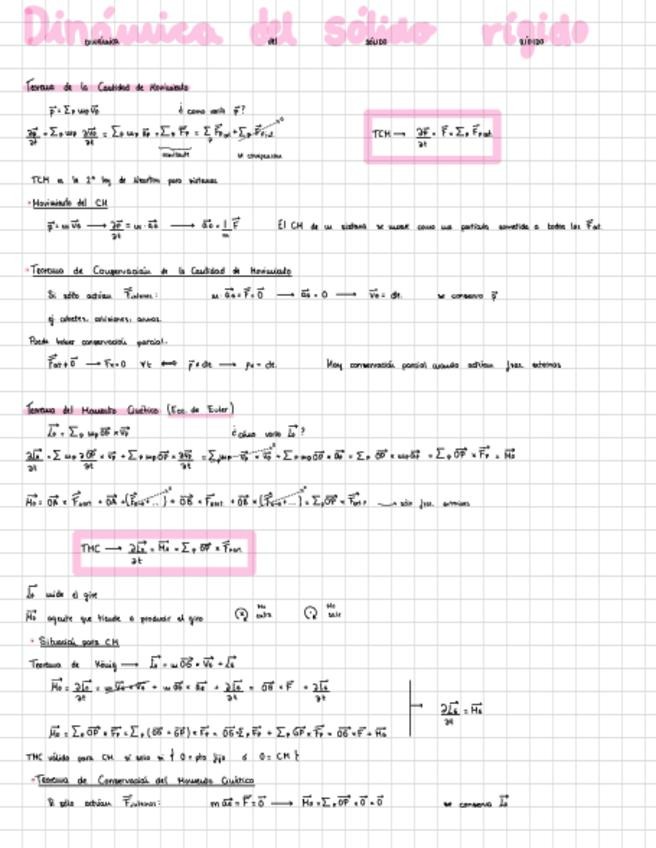 Dinámica del sólido rígido
DINÁMICA DEL SÓLIDO RÍGIDO
Teorema de la Cantidad de Movimiento
p⃗ = Σp mp v⃗p ¿ cómo varía p⃗ ?
TCM → ∂p⃗/∂t = F⃗ = Σp F⃗p,ext
constante se compensan
TCM es la 2ª ley de Newton para sistemas
· Movimiento del CM
p⃗ = m v⃗G → ∂p⃗/∂t = m · a⃗G → a⃗G = 1/m F⃗ El CM de un sistema se mueve como una partícula sometida a todas las F⃗ext
· Teorema de Conservación de la Cantidad de Movimiento
Si sólo actúan F⃗internas: m a⃗G = F⃗ = 0⃗ → a⃗G = 0 → v⃗G = cte. se conserva p⃗
ej cohetes, colisiones, armas.
Puede haber conservación parcial.
F⃗ext ≠ 0⃗ → Fx = 0 ∀t ⟺ p⃗ ≠ cte → px = cte. Hay conservación parcial cuando actúan fzas externas
Teorema del Momento Cinético (Ecc. de Euler)
L⃗o = Σp mp OP⃗ × v⃗p ¿ cómo varía L⃗o ?
→ sólo fzas. externas
TMC → ∂L⃗o/∂t = M⃗o = Σp OP⃗ × F⃗p,ext
L⃗o mide el giro
M⃗o agente que tiende a producir el giro Mo entra Mo sale
· Situación para CM
Teorema de König → L⃗o = m OG⃗ × v⃗G + L⃗G
M⃗o = ∂L⃗o/∂t = m v⃗G × v⃗G + m OG⃗ × a⃗G + ∂L⃗G/∂t = OG⃗ × F⃗ + ∂L⃗G/∂t
∂L⃗G/∂t = M⃗G
M⃗o = Σp OP⃗ × F⃗p = Σp (OG⃗ + GP⃗) × F⃗p = OG⃗ × Σp F⃗p + Σp GP⃗ × F⃗p = OG⃗ × F⃗ + M⃗G
TMC válido para CM si solo si { O = pto fijo ó O = CM }
· Teorema de Conservación del Momento Cinético
Si sólo actúan F⃗internas: m a⃗G = F⃗ = 0⃗ → M⃗o = Σp OP⃗ × 0⃗ = 0 se conserva L⃗o